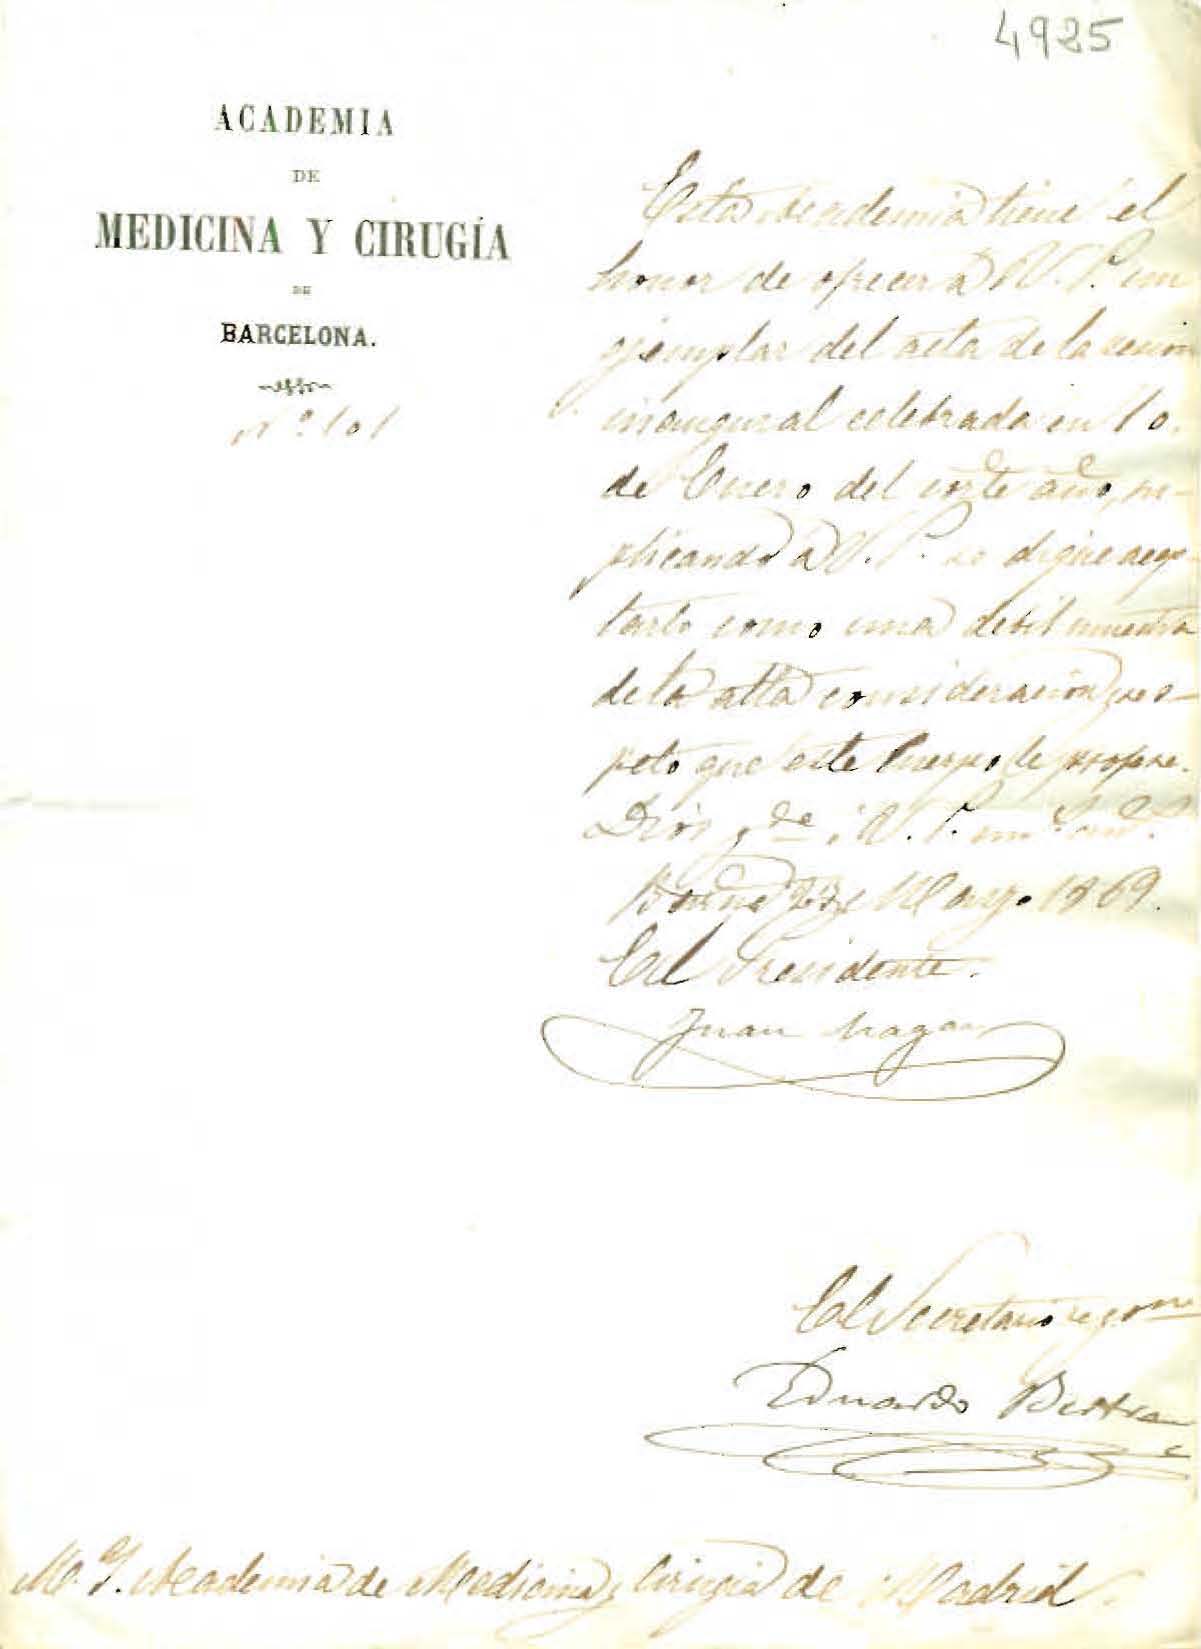 4925
ACADEMIA
DE
MEDICINA Y CIRUGÍA
DE
BARCELONA.
Nº 101
Esta Academia tiene el
honor de ofrecer á V. S. un
ejemplar del acta de la sesion
inaugural celebrada en 10
de Enero del corte año, su-
plicando á V. S. se digne acep-
tarlo como una debil muestra
de la alta consideracion y res-
peto que este Cuerpo le profesa.
Dios gde á V. S. ms as.
Mayo 1869.
El Presidente.
Juan Magaz
El Secretario de gobno
Eduardo Bertran
M. I. Academia de Medicina y Cirugia de Madrid.